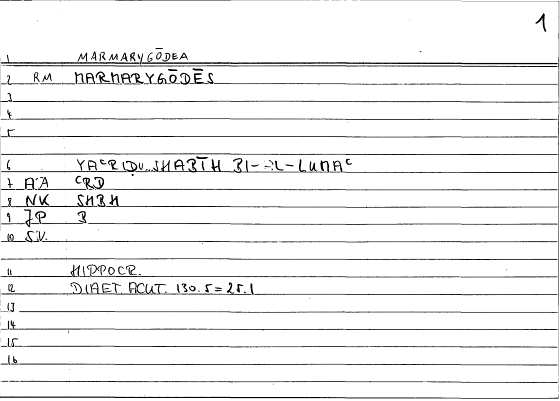 1
1 MARMARYGŌDEA
2 RM MARMARYGŌDĒS
3
4
5
6 SHABĪH BI-AL-LUMAᶜ
7 AA ᶜRD
8 NK SHBH
9 JP B
10 S.V.
11 HIPPOCR.
12 DIAET. ACUT. 130.5=25.1
13
14
15
16